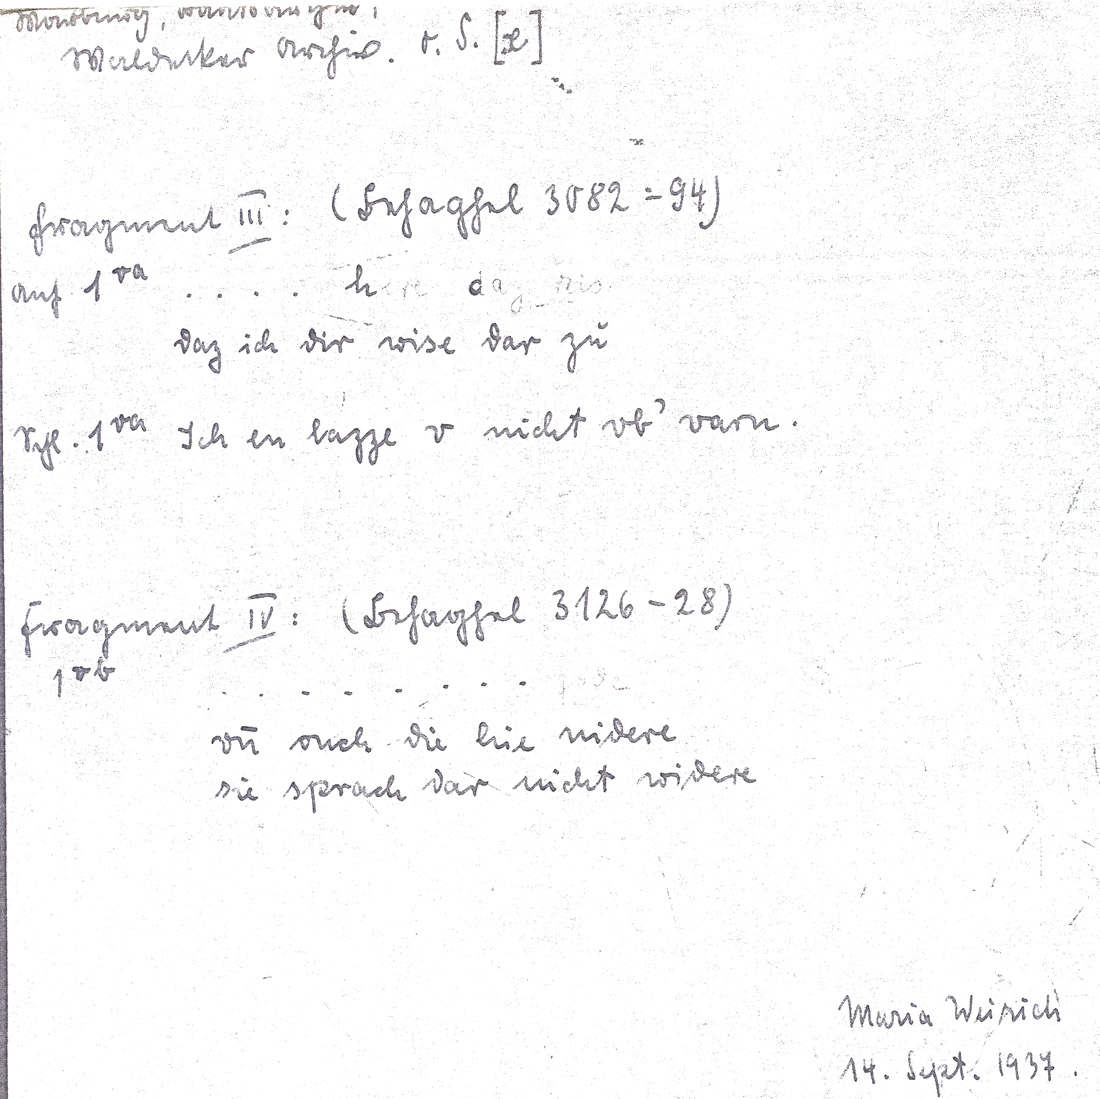 Marburg, 
Waldecker Archiv. v. S. [x]
Fragment III: (Behaghel 3082=94)
Anf 1va . . . . h daz
daz ich dir wise dar zů
Schl. 1va Ich en lazze v nicht vb' varn.
Fragment IV: (Behaghel 3126-28)
1vb . . . . . . . .
vn̄ ouch die hie nidere
sie sprach dar nicht widere
Maria Weirich
14. Sept. 1937.